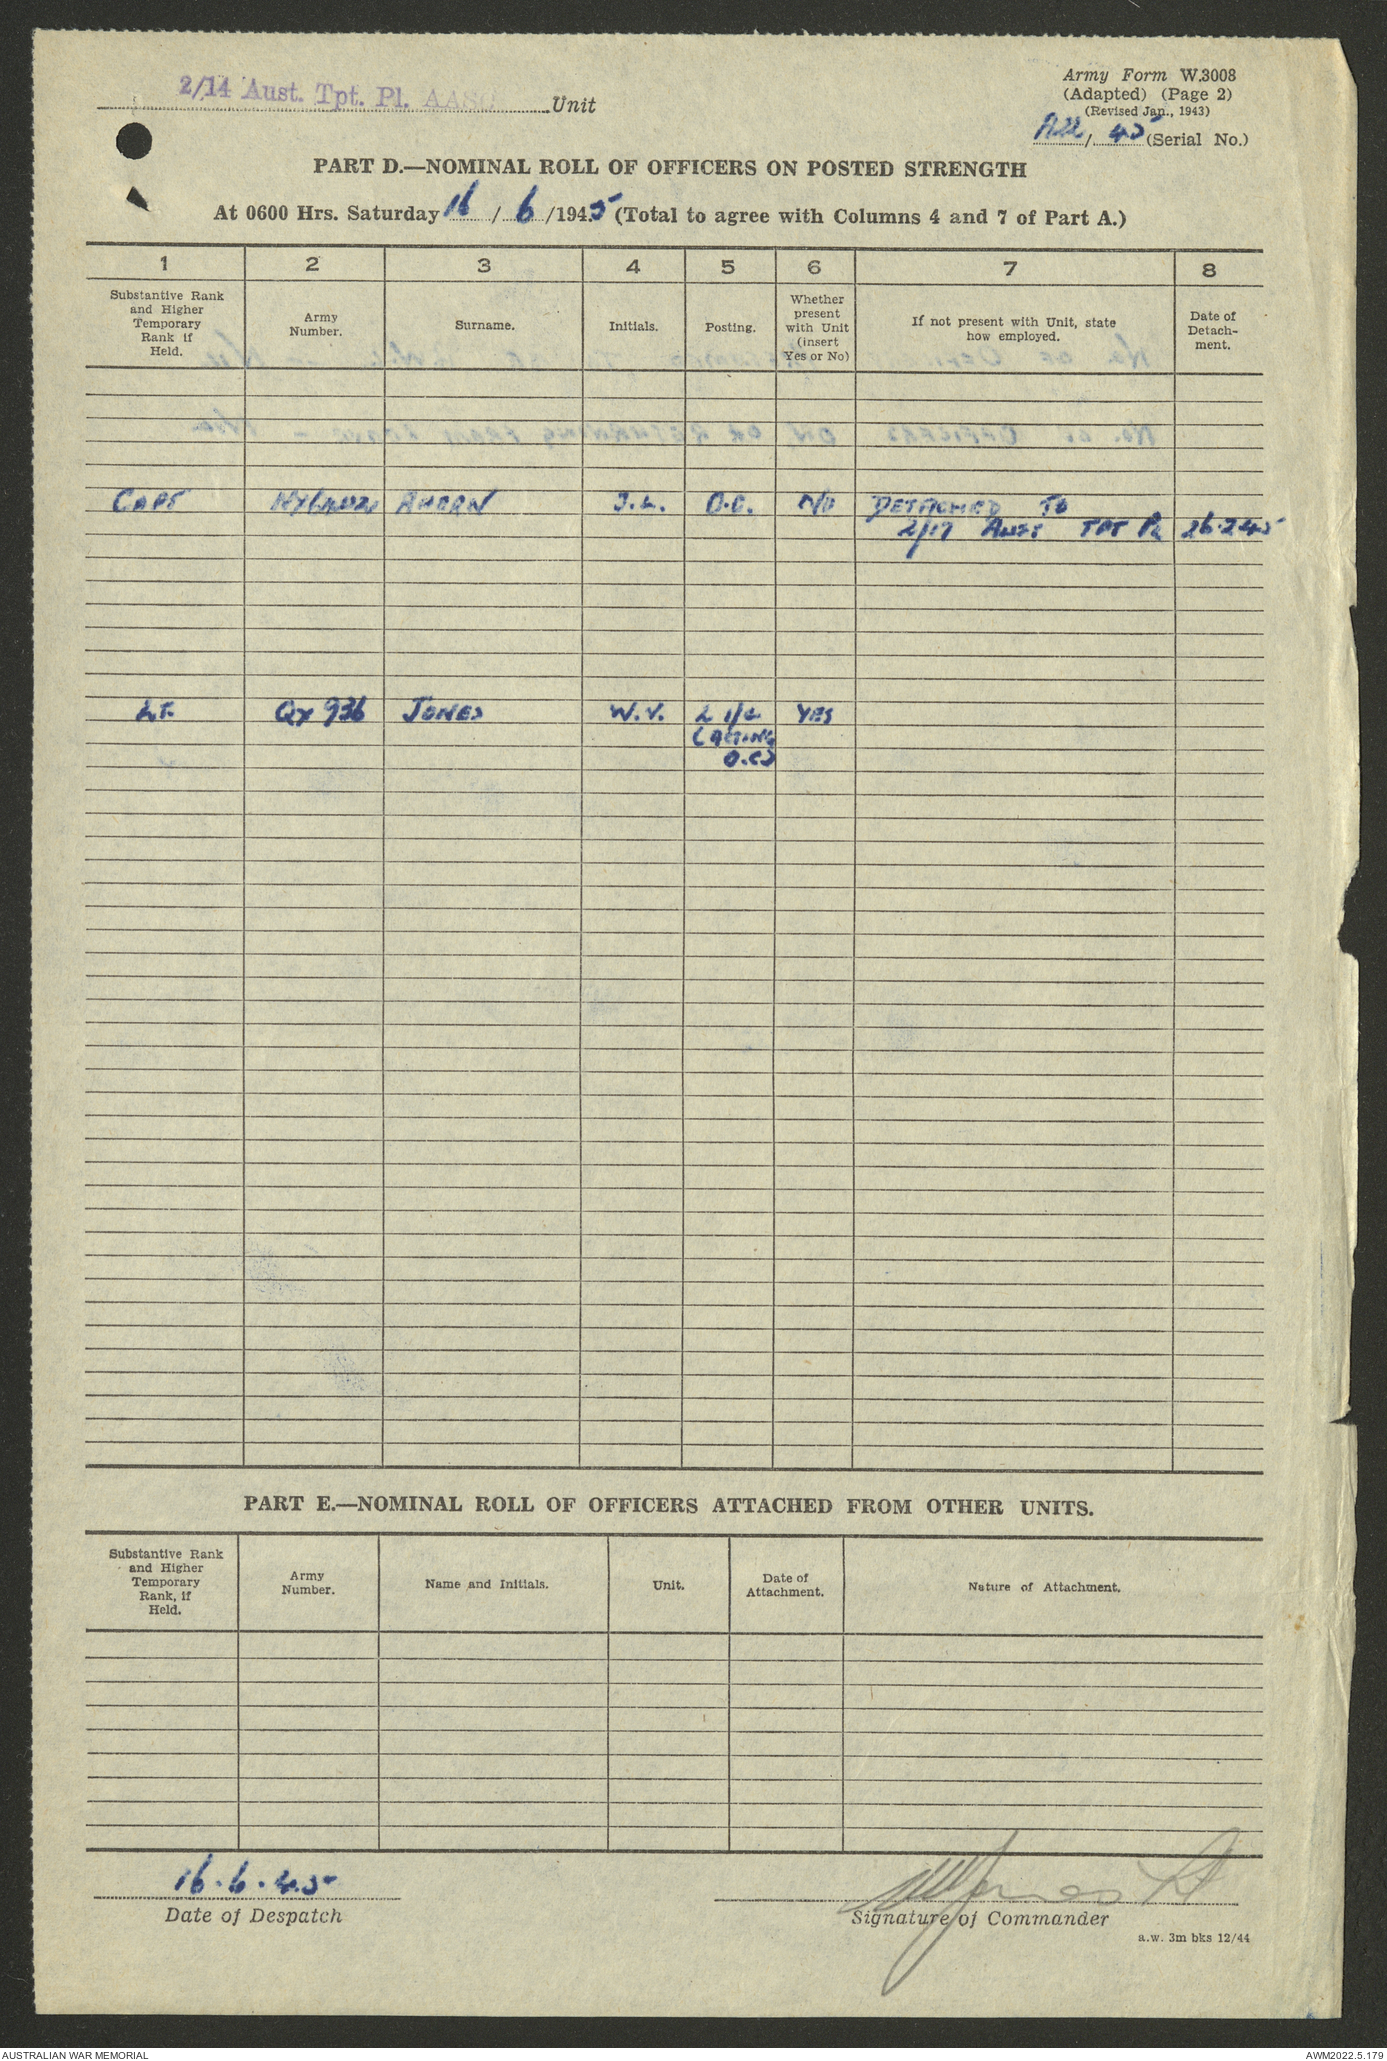 2/14 Aust. Tpt. Pl. AASC Unit
Army Form W.3008
(Adapted) (Page 2)
(Revised Jan., 1943)
/ 45 (Serial No.)
PART D.—NOMINAL ROLL OF OFFICERS ON POSTED STRENGTH
At 0600 Hrs. Saturday 16 / 6 /1945 (Total to agree with Columns 4 and 7 of Part A.)
1 2 3 4 5 6 7 8
Substantive Rank and Higher Temporary Rank if Held. Army Number. Surname. Initials. Posting. Whether present with Unit (insert Yes or No) If not present with Unit, state how employed. Date of Detach-ment.
CAPT AHERN J.L. O.C. NO DETACHED TO
2/17 AUST TPT PL 26.2.45
LT. QX 936 JONES W.V. 2 I/C YES
(ACTING
O.C)
PART E.—NOMINAL ROLL OF OFFICERS ATTACHED FROM OTHER UNITS.
Substantive Rank and Higher Temporary Rank, if Held. Army Number. Name and Initials. Unit. Date of Attachment. Nature of Attachment.
16.6.45 WVJones Lt
Date of Despatch Signature of Commander
a.w. 3m bks 12/44
AUSTRALIAN WAR MEMORIAL AWM2022.5.179